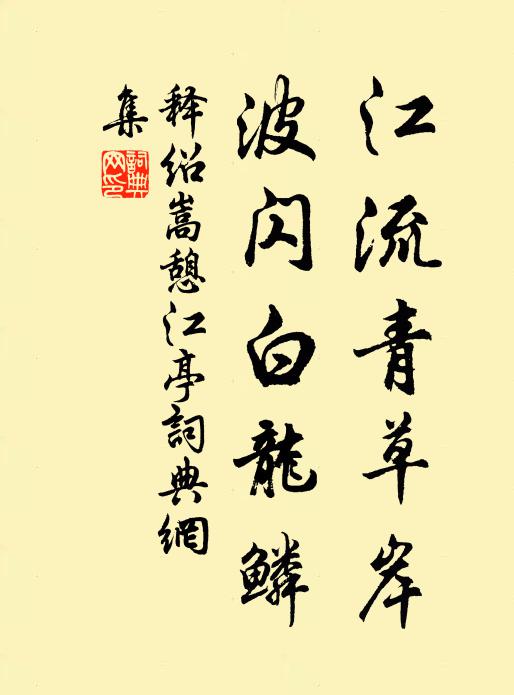 江流青草岸
波闪白龍鱗
释绍嵩憩江亭詞典網
集
詞典网印